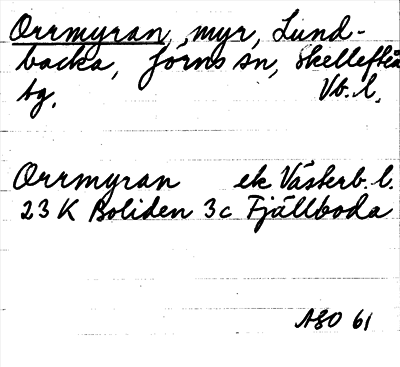 Orrmyran, myr, Lund-
backa, Jörns sn, Skellefteå
tg. Vb. l.
Orrmyran ek Västerb. l.
23 K Boliden 3c Fjällboda
ASO 61